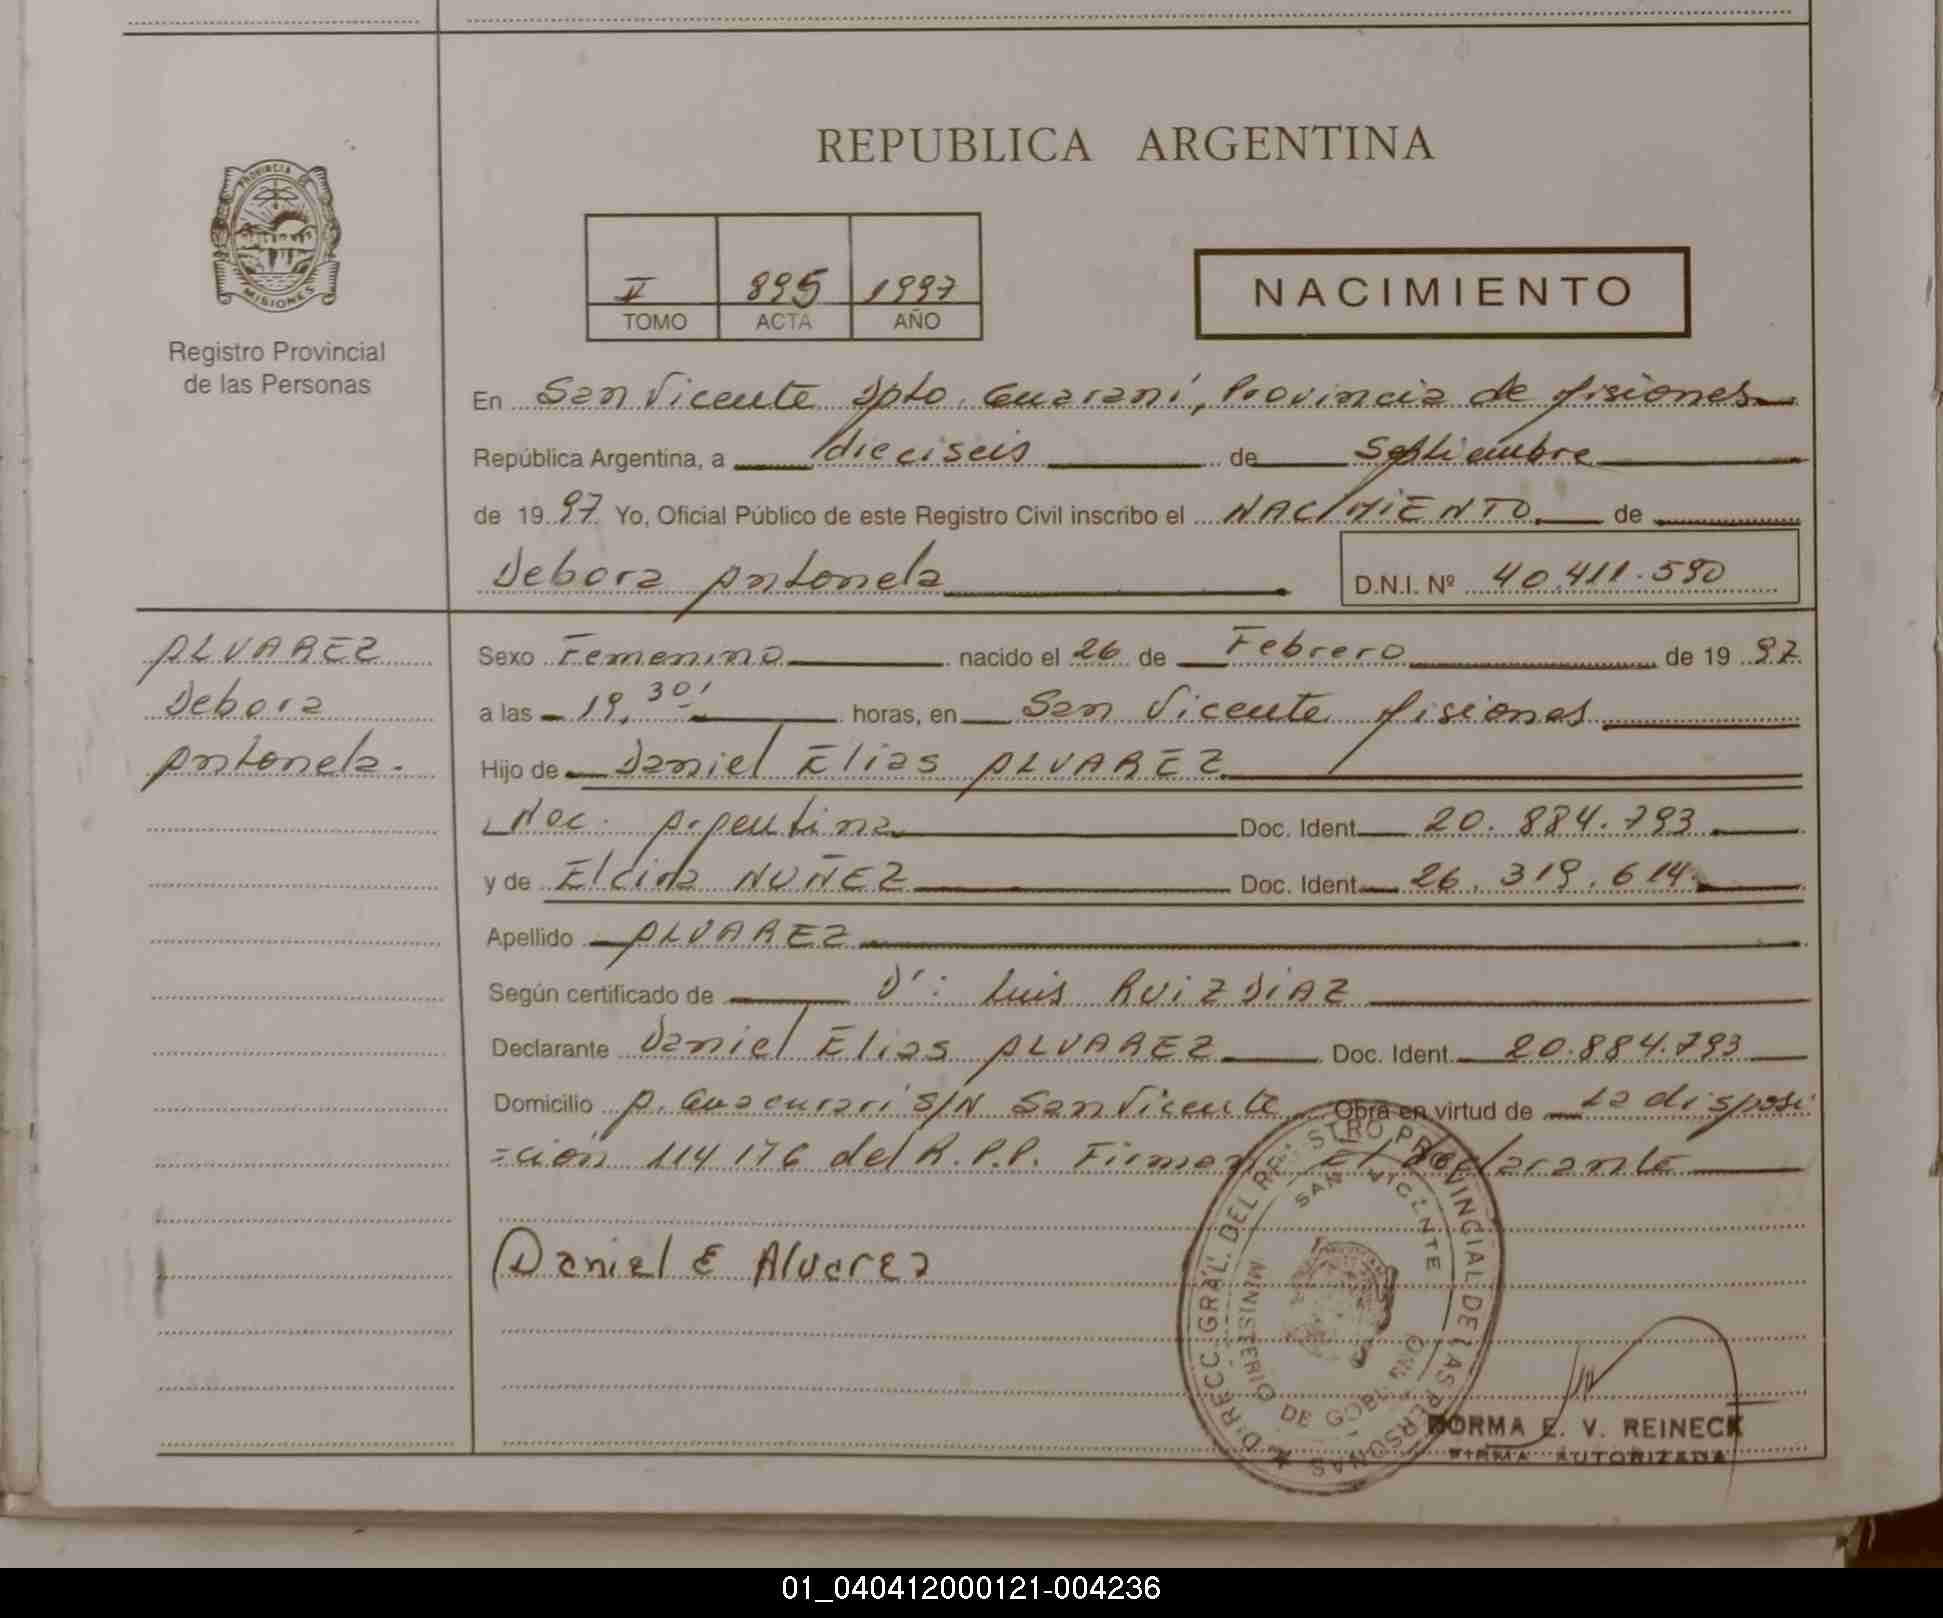 REPUBLICA ARGENTINA
PROVINCIA DE
MISIONES
Registro Provincial
de las Personas
II 895 1997
TOMO ACTA AÑO
NACIMIENTO
En San Vicente Dpto. Guaraní, Provincia de Misiones
República Argentina, a dieciseis de Septiembre
de 1997 Yo, Oficial Público de este Registro Civil inscribo el NACIMIENTO de
Debora Antonela D.N.I. Nº 40.411.590
ALVAREZ
Debora
Antonela.
Sexo Femenino nacido el 26 de Febrero de 1997
a las 19,30' horas, en San Vicente Misiones
Hijo de Daniel Elias ALVAREZ
Nac. Argentina Doc. Ident. 20.884.793
y de Elcira NUÑEZ Doc. Ident. 26.319.614
Apellido ALVAREZ
Según certificado de Dr: Luis RUIZ DIAZ
Declarante Daniel Elias ALVAREZ Doc. Ident. 20.884.793
Domicilio A. Guacurari S/N San Vicente Obra en virtud de la disposi
=ción 114/76 del R.P.P. Firma El declarante
Daniel E Alvarez
DIRECC. GRAL. DEL REGISTRO PROVINCIAL DE LAS PERSONAS
SAN VICENTE
MINISTERIO DE GOBIERNO
NORMA E. V. REINECK
FIRMA AUTORIZADA
01_040412000121-004236